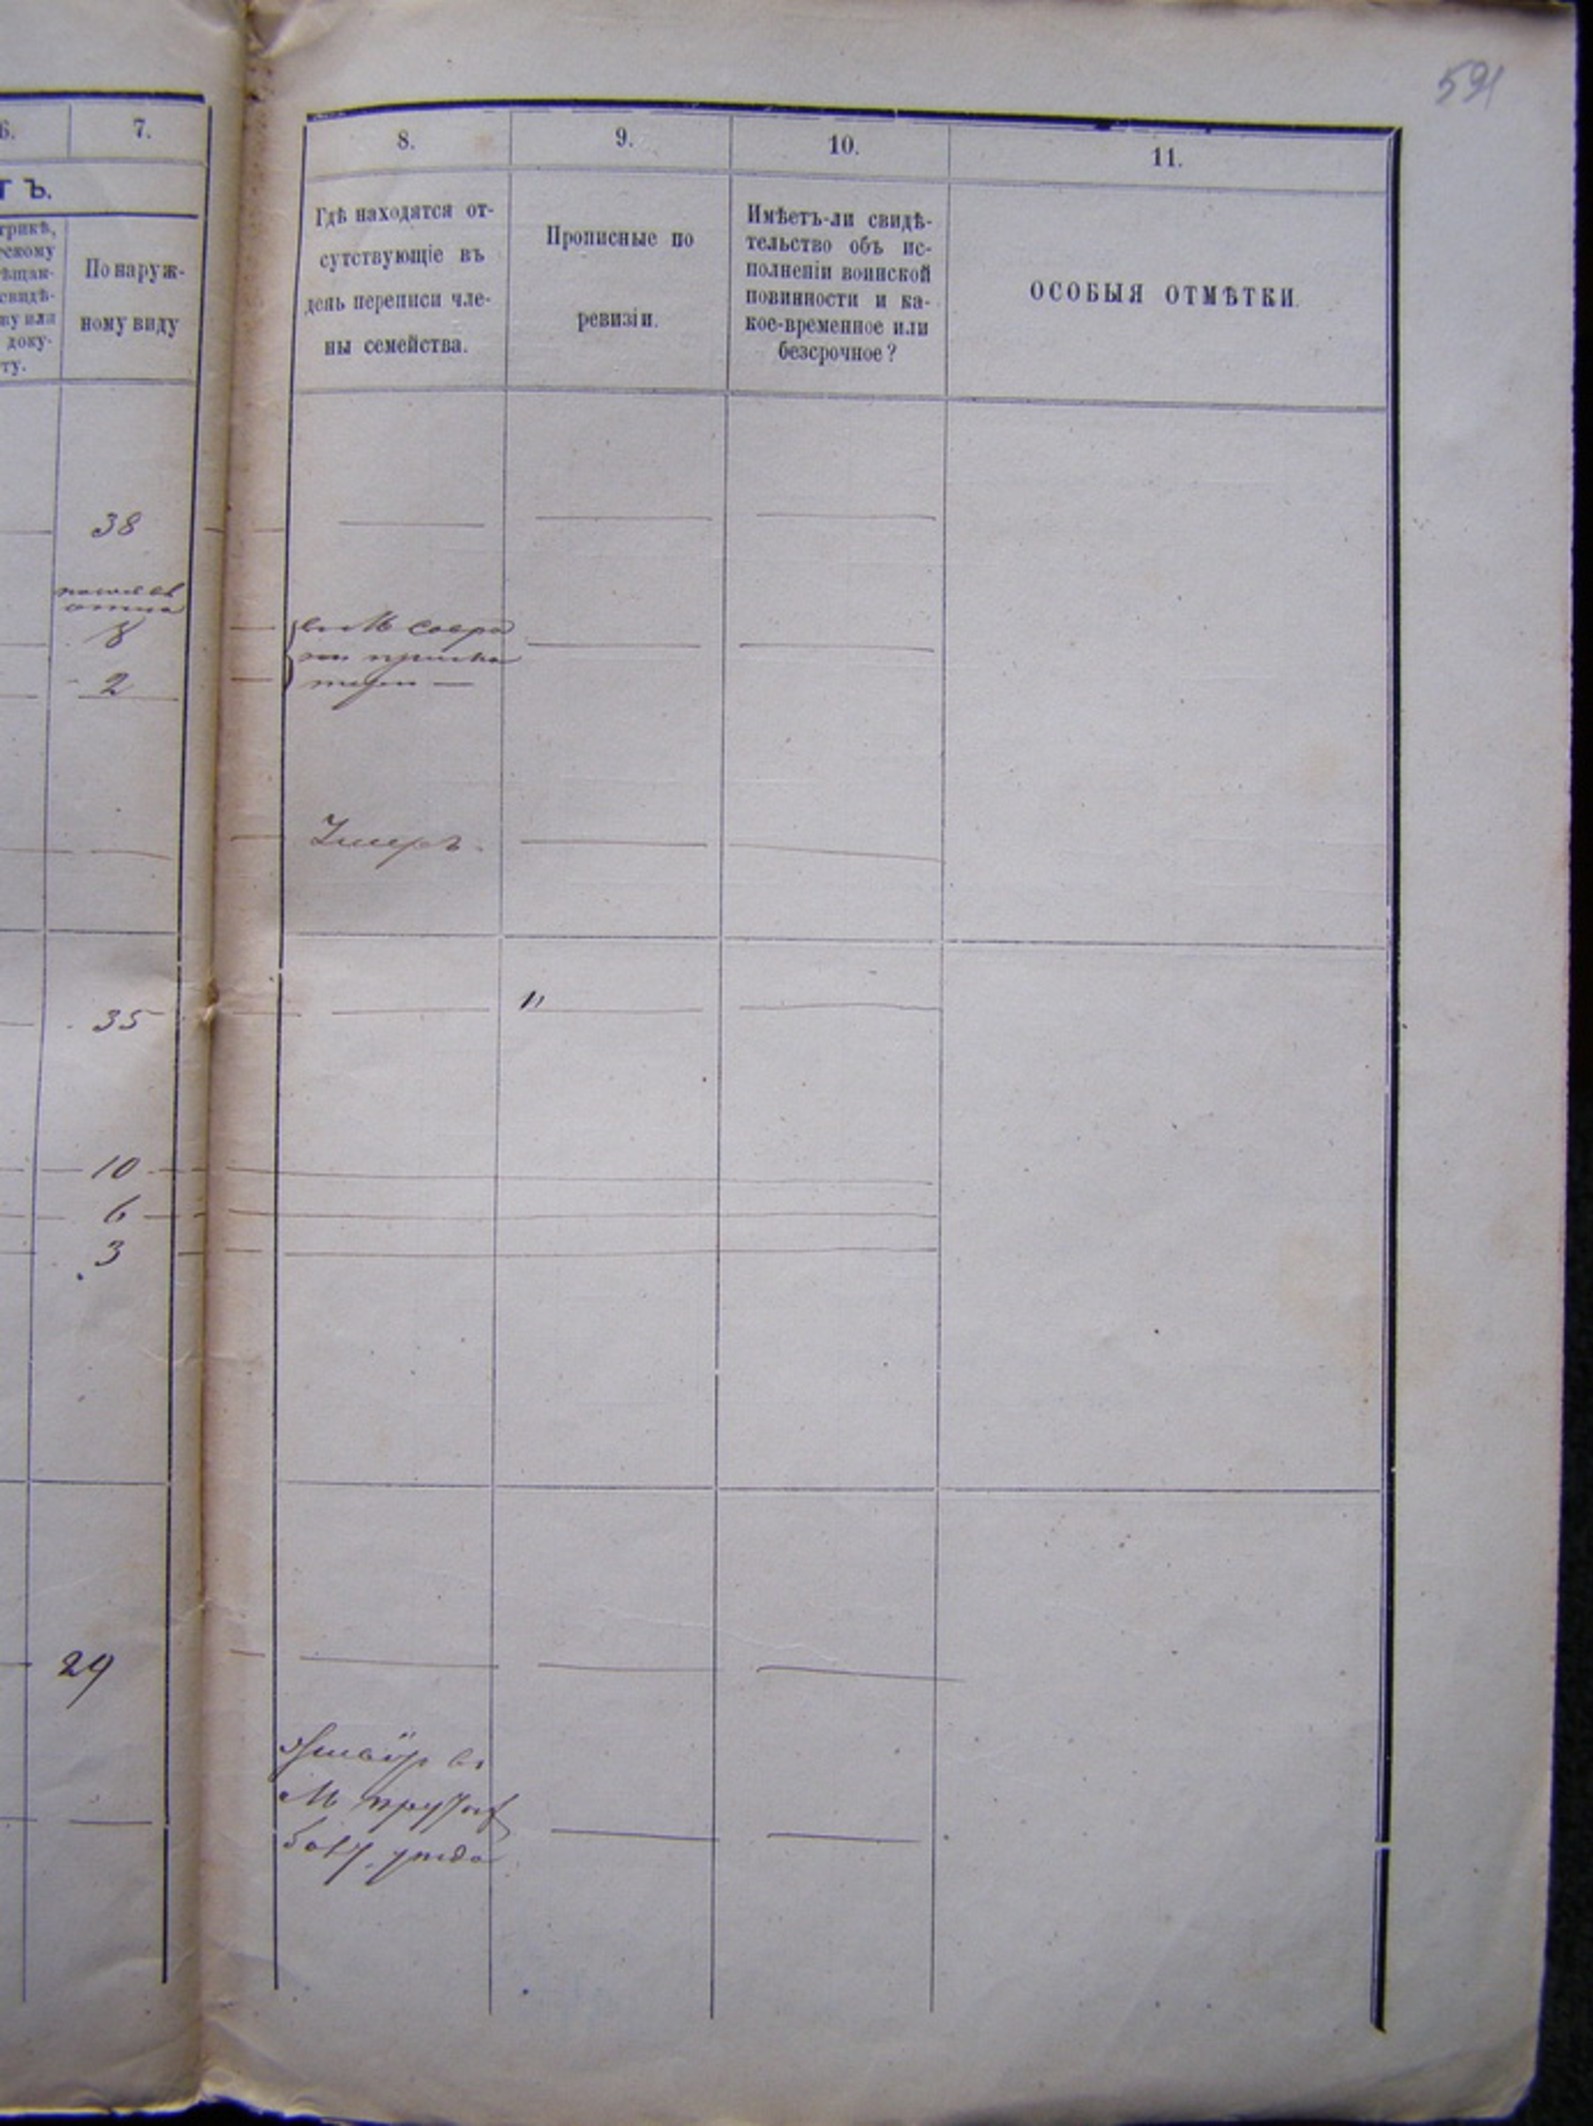 591
6.
7.
8.
9.
10.
11.
ТЪ.
трикѣ,
скому
ѣщан-
свидѣ-
ку или
доку-
ту.
По наруж-
ному виду
Гдѣ находятся от-
сутствующіе въ
день переписи чле-
ны семейства.
Прописные по
ревизіи.
Имѣетъ-ли свидѣ-
тельство объ ис-
полненіи воинской
повинности и ка-
кое-временное или
безсрочное?
ОСОБЫЯ ОТМѢТКИ.
38
отца
8
2
Умеръ.
35
"
10
6
3
29
въ
М
уѣзда